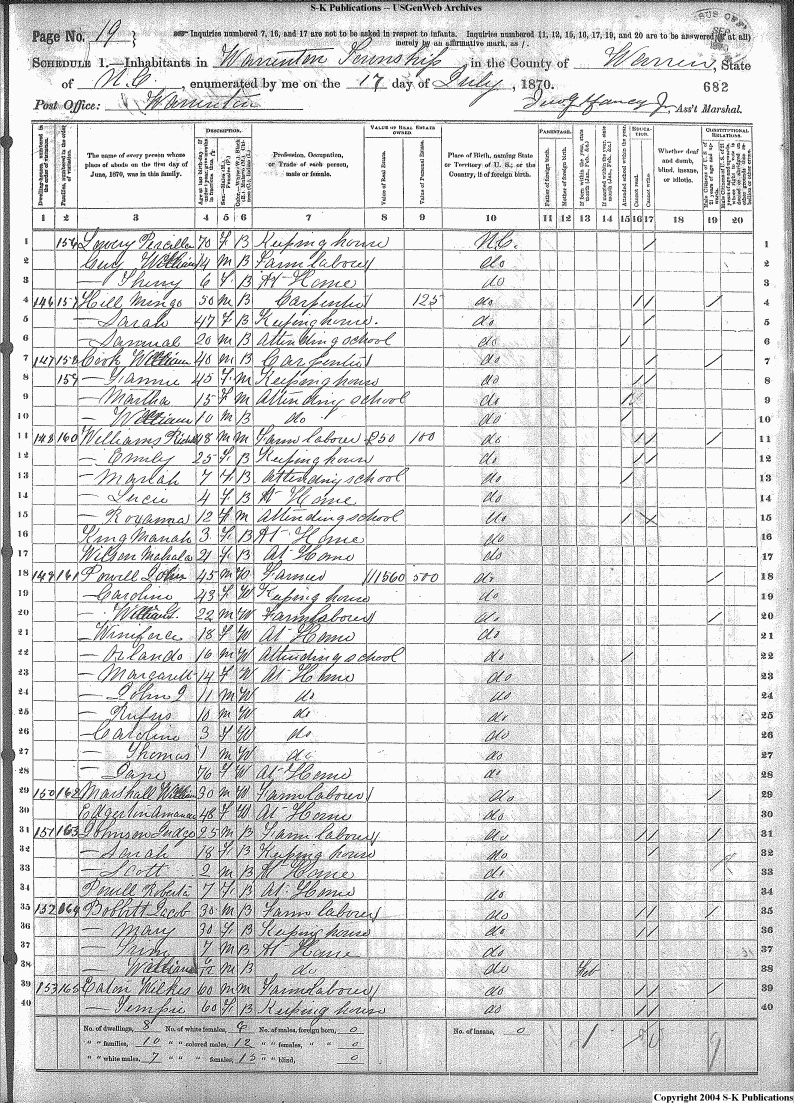 S-K Publications -- USGenWeb Archives
Page No. 19
Inquiries numbered 7, 16, and 17 are not to be asked in respect to infants. Inquiries numbered 11, 12, 15, 16, 17, 19, and 20 are to be answered (if at all)
merely by an affirmative mark, as /.
SCHEDULE 1.—Inhabitants in Warrenton Township, in the County of Warren, State
of N.C., enumerated by me on the 17 day of July, 1870.
682
Post Office: Warrenton
Ass't Marshal.
DESCRIPTION.
VALUE OF REAL ESTATE OWNED.
PARENTAGE.
EDUCATION.
CONSTITUTIONAL RELATIONS.
Dwelling-houses, numbered in the order of visitation.
Families, numbered in the order of visitation.
The name of every person whose place of abode on the first day of June, 1870, was in this family.
Profession, Occupation, or Trade of each person, male or female.
Value of Real Estate.
Value of Personal Estate.
Place of Birth, naming State or Territory of U. S.; or the Country, if of foreign birth.
Father of foreign birth.
Mother of foreign birth.
Attended school within the year.
Cannot read.
Cannot write.
Whether deaf and dumb, blind, insane, or idiotic.
1 2 3 4 5 6 7 8 9 10 11 12 13 14 15 16 17 18 19 20
1 156 Lowery 70 F B Keeping house N.C. / 1
2 Guy William 14 M B Farm labour do 2
3 — 6 F B At Home do 3
4 146 157 Hill Mingo 50 M B Carpenter 125 do / / / 4
5 — Sarah 47 F B Keeping house. do / 5
6 — Samual 20 M B Attending school do / 6
7 147 158 Cook William 40 M B Carpenter do / / 7
8 159 — 45 F M Keeping house do / / 8
9 — Martha 15 F M Attending school do / 9
10 — William 10 M B do do / 10
11 148 160 Williams 48 M M Farm labour 250 100 do / / / 11
12 — Emily 25 F B Keeping house do / / 12
13 — Mariah 7 F B Attending school do / 13
14 — Lucie 4 F B At Home do 14
15 — Roxanna 12 F M Attending school do / 15
16 King Mariah 3 F B At Home do 16
17 Wilson Mahala 21 F B At Home do 17
18 149 161 Powell John 45 M W Farmer 1560 500 do / 18
19 — Caroline 43 F W Keeping house do 19
20 — William 22 M W Farm labour do / 20
21 — 18 F W At Home do 21
22 — Orlando 16 M W Attending school do / 22
23 — Margarett 14 F W At Home do 23
24 — John 11 M W do do 24
25 — Rufus 10 M W do do 25
26 — Caroline 3 F W do do 26
27 — Thomas 1 M W do do 27
28 — Jane 76 F W At Home do 28
29 150 162 Marshall William 30 M W Farm labour do / 29
30 Edgerton Amanda 48 F W At Home do 30
31 151 163 Johnson Judge 25 M B Farm labour do / / / 31
32 — Sarah 18 F B Keeping house do / 32
33 — Scott 2 M B At Home do 33
34 Powell Roberta 7 F B At Home do 34
35 152 164 Bobbitt Jacob 30 M B Farm labour do / / / 35
36 — Mary 30 F B Keeping house do / / 36
37 — 7 M B At Home do 37
38 — William M B do do Feb 38
39 153 165 Eaton Wilkes 60 M M Farm labour do / / / 39
40 — Tempie 60 F B Keeping house do / / 40
No. of dwellings, 8 No. of white females, 6 No. of males, foreign born, 0 No. of insane, 0
" " families, 10 " " colored males, 12 " " females, " " 0
" " white males, 7 " " " females, 15 " " blind, 0
Copyright 2004 S-K Publications